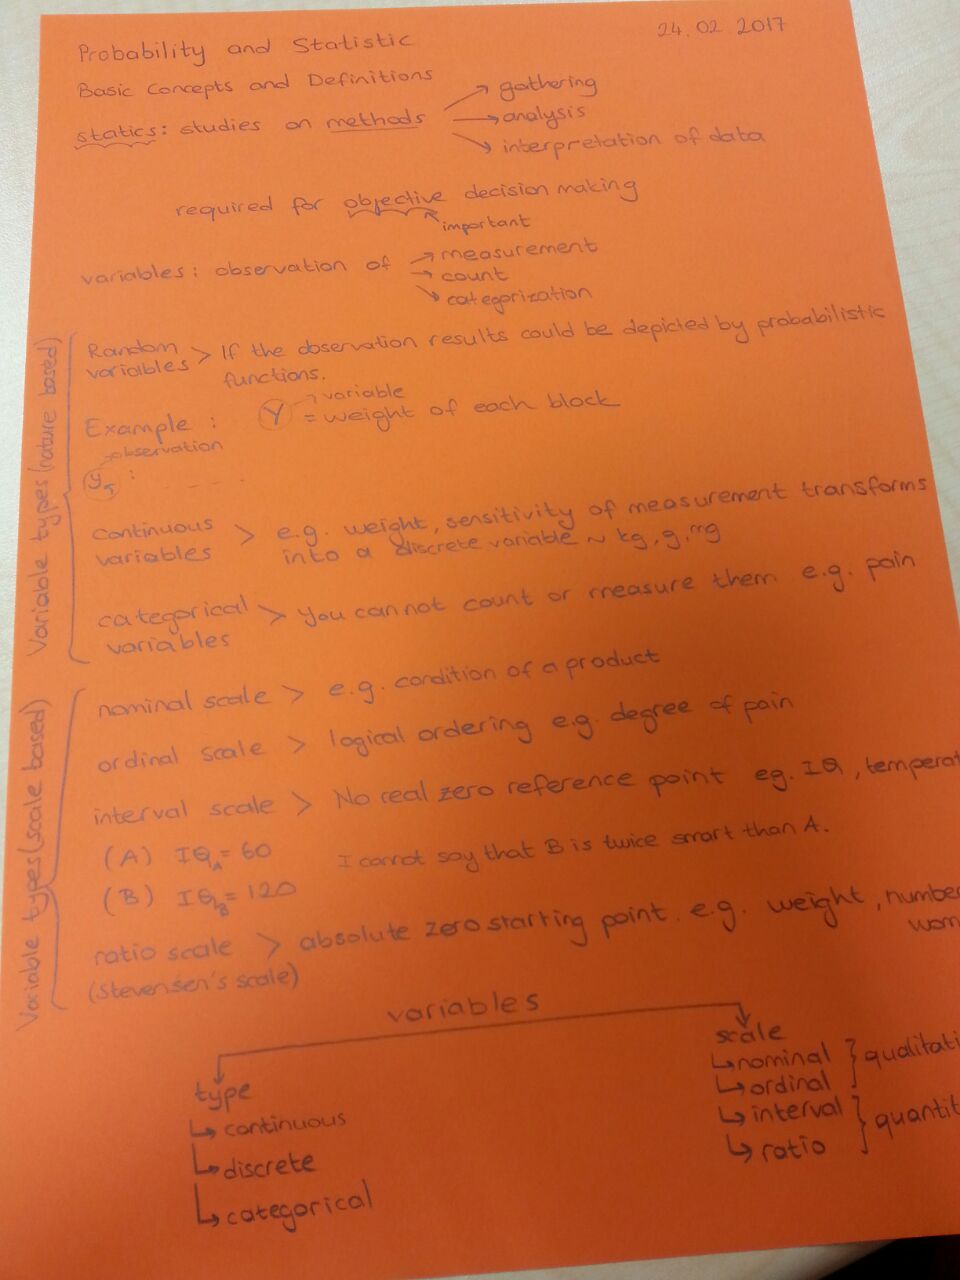 24.02.2017
Probability and Statistic
Basic Concepts and Definitions
statics: studies on methods → gathering
→ analysis
→ interpretation of data
required for objective decision making
important
variables: observation of → measurement
→ count
→ categorization
Variable types (nature based)
Random variables > If the observation results could be depicted by probabilistic
functions.
variable
Example : Y = weight of each block
observation
y5 : - - - -
continuous > e.g. weight, sensitivity of measurement transforms
variables into a discrete variable ~ kg, g, mg
categorical > you cannot count or measure them e.g. pain
variables
Variable types (scale based)
nominal scale > e.g. condition of a product
ordinal scale > logical ordering e.g. degree of pain
interval scale > No real zero reference point eg. IQ, temperat
(A) IQA = 60 I cannot say that B is twice smart than A.
(B) IQB = 120
ratio scale > absolute zero starting point. e.g. weight, number
(Stevensen's scale) wom
variables
type
↳ continuous
↳ discrete
↳ categorical
scale
↳ nominal } qualitati
↳ ordinal
↳ interval } quantit
↳ ratio